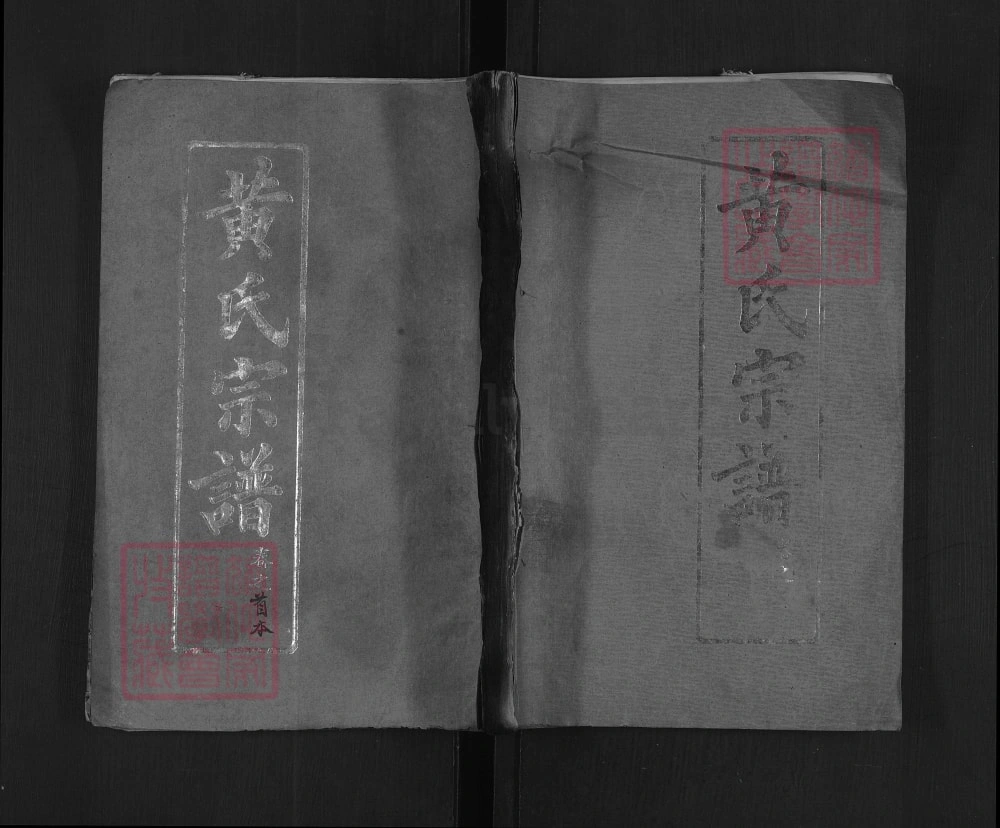 黃氏宗譜
卷之首本
黃氏宗譜